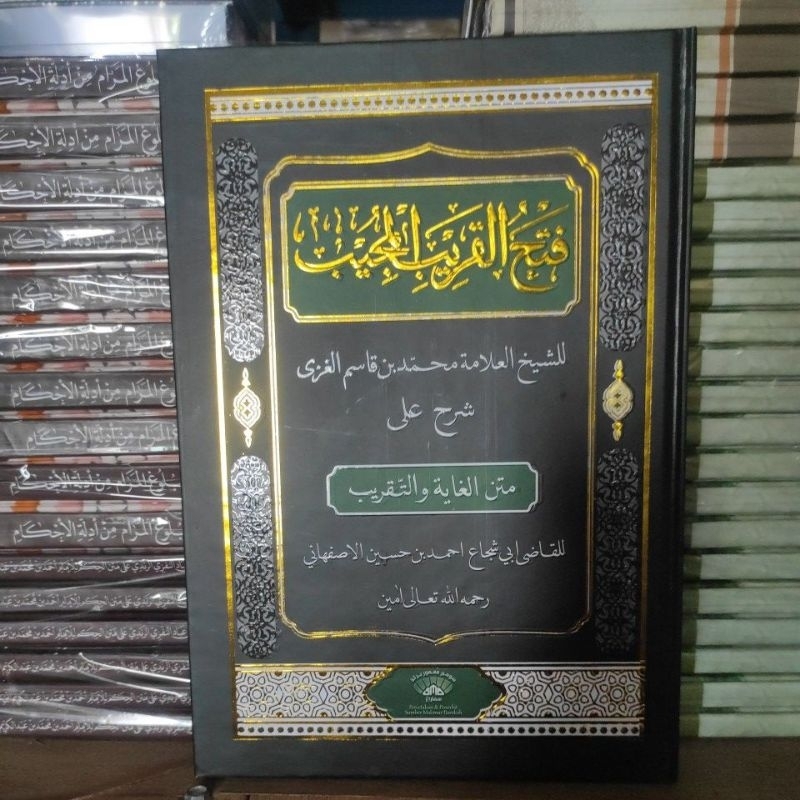 فَتْحُ الْقَرِيْبِ الْمُجِيْبِ
للشيخ العلامة محمد بن قاسم الغزى
شرح على
متن الغاية والتقريب
للقاضى ابى شجاع احمد بن حسين الاصفهانى
رحمه الله تعالى امين
Percetakan & Penerbit
بلوغ المرام من أدلة الأحكام
بلوغ المرام من أدلة الأحكام
بلوغ المرام من أدلة الأحكام
بلوغ المرام من أدلة الأحكام
بلوغ المرام من أدلة الأحكام
بلوغ المرام من أدلة الأحكام
بلوغ المرام من أدلة الأحكام
بلوغ المرام من أدلة الأحكام
بلوغ المرام من أدلة الأحكام
بلوغ المرام من أدلة الأحكام